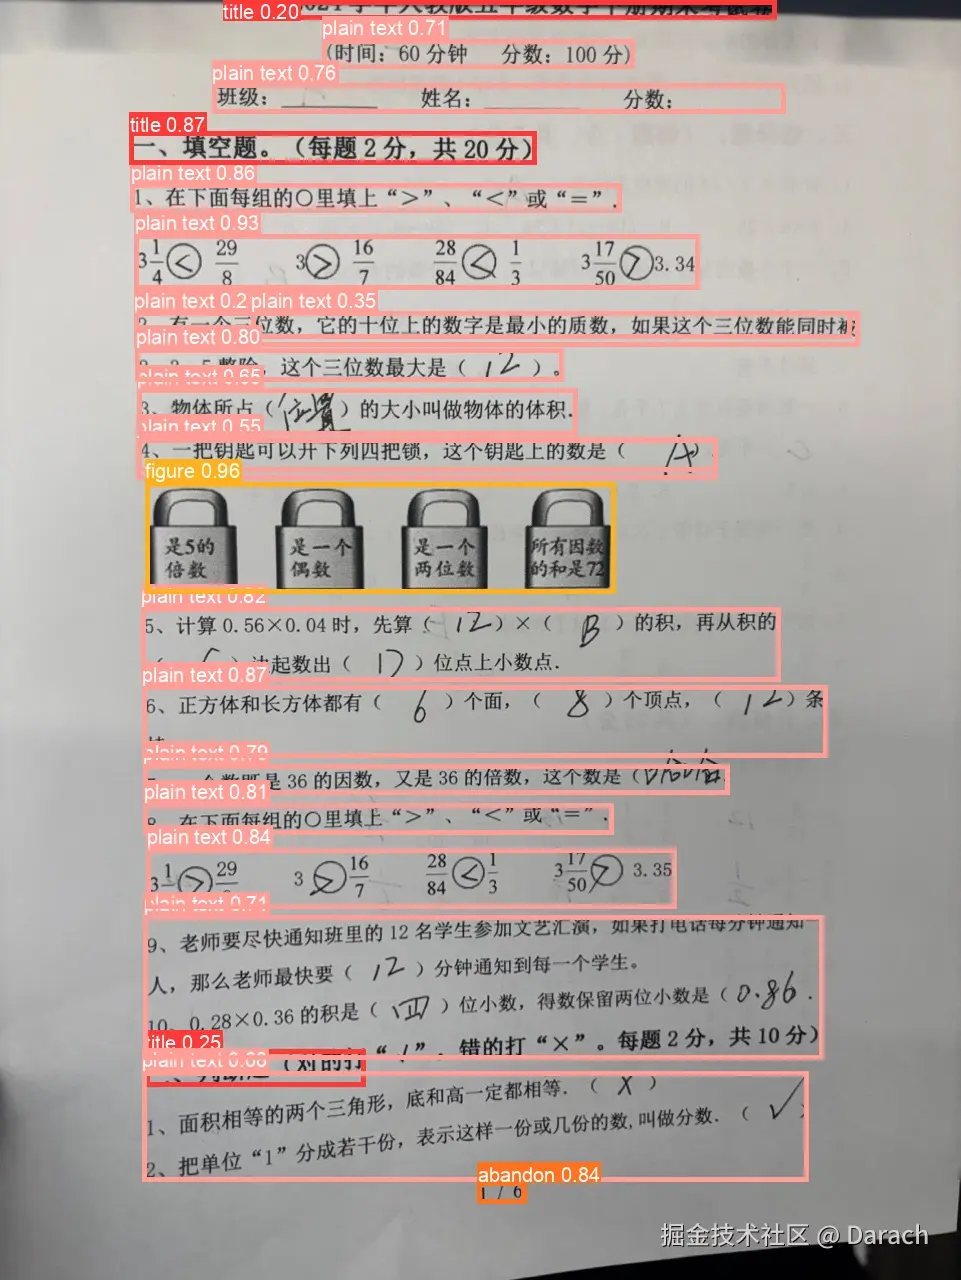 title 0.20
2021学年人教版五年级数学下册期末考试卷
plain text 0.71
(时间：60分钟 分数：100分)
plain text 0.76
班级： 姓名： 分数：
title 0.87
一、填空题。（每题2分，共20分）
plain text 0.86
1、在下面每组的○里填上“>”、“<”或“=”.
plain text 0.93
3 1/4 < 29/8 3 > 16/7 28/84 < 1/3 3 17/50 > 3.34
plain text 0.2 plain text 0.35
2、有一个三位数，它的十位上的数字是最小的质数，如果这个三位数能同时被
plain text 0.80
2、3、5整除，这个三位数最大是（ 12 ）。
plain text 0.65
3、物体所占（位置）的大小叫做物体的体积.
plain text 0.55
4、一把钥匙可以开下列四把锁，这个钥匙上的数是（ A ）.
figure 0.96
是5的倍数 是一个偶数 是一个两位数 所有因数的和是72
plain text 0.82
5、计算0.56×0.04时，先算（ 12 ）×（ B ）的积，再从积的
（ ）边起数出（ 17 ）位点上小数点.
plain text 0.87
6、正方体和长方体都有（ 6 ）个面，（ 8 ）个顶点，（ 12 ）条
plain text 0.79
个数既是36的因数，又是36的倍数，这个数是（
plain text 0.81
8、在下面每组的○里填上“>”、“<”或“=”.
plain text 0.84
3 1/4 > 29/8 3 > 16/7 28/84 < 1/3 3 17/50 > 3.35
plain text 0.71
9、老师要尽快通知班里的12名学生参加文艺汇演，如果打电话每分钟通知一
人，那么老师最快要（ 12 ）分钟通知到每一个学生。
10、0.28×0.36的积是（ 四 ）位小数，得数保留两位小数是（ 0.86 .
title 0.25
二、判断题（对的打“√”，错的打“×”。每题2分，共10分）
plain text 0.88
1、面积相等的两个三角形，底和高一定都相等.（ × ）
2、把单位“1”分成若干份，表示这样一份或几份的数,叫做分数.（ √
abandon 0.84
1 / 6
掘金技术社区 @ Darach